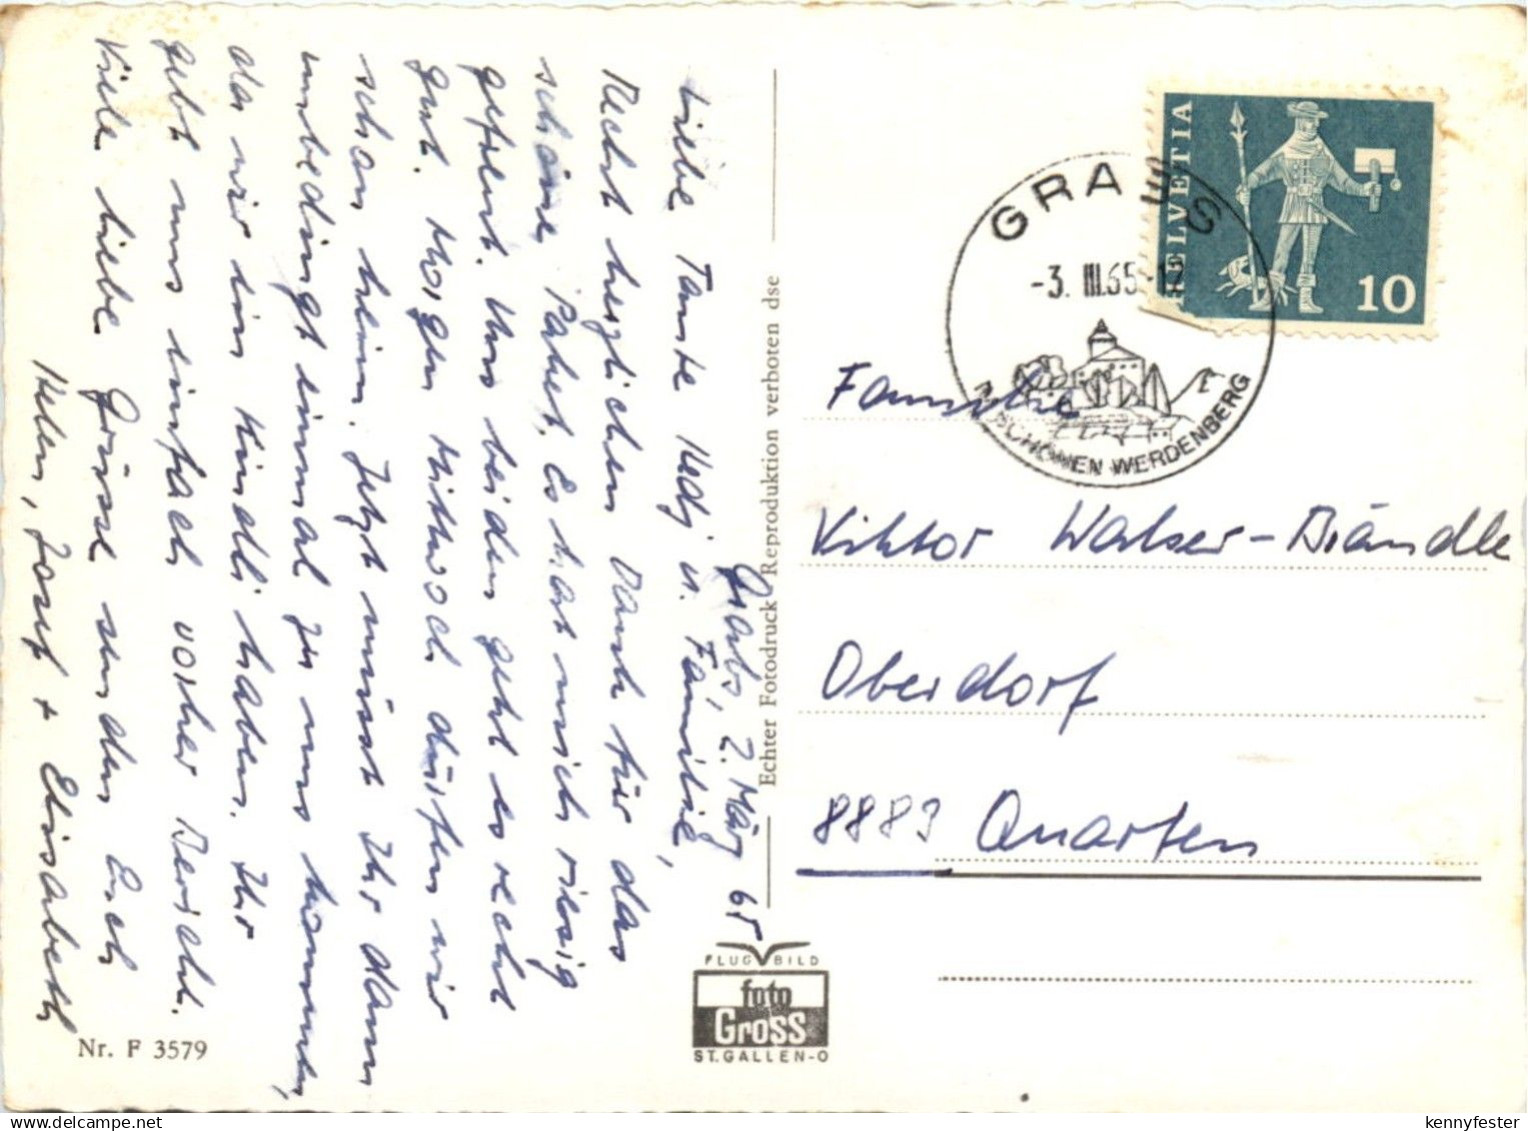 Grabs, 2. März 65
Liebe Tante Hedj u. Familie,
Recht herzlichen Dank für das
schöne Paket. Es hat mich riesig
gefreut. Uns beiden geht es recht
gut. Morgen Mittwoch dürfen wir
schon heim. Jetzt müsst Ihr dann
unbedingt einmal zu uns kommen,
da wir ein Kindli haben. Ihr
gebt uns einfach vorher Bericht.
Viele liebe Grüsse senden Euch
Helen, Josef + Elisabeth
Nr. F 3579
Echter Fotodruck Reproduktion verboten dse
FLUG BILD
foto
Gross
ST. GALLEN-O
HELVETIA
10
GRABS
-3. III. 65-12
IM SCHÖNEN WERDENBERG
Familie
Viktor Walser-Brändle
Oberdorf
8883 Quarten
kennyfester